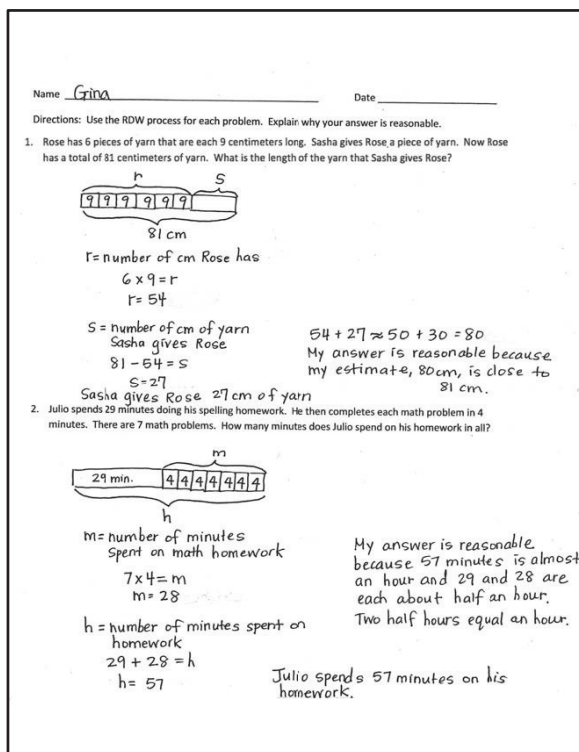 Name Gina Date
Directions: Use the RDW process for each problem. Explain why your answer is reasonable.
1. Rose has 6 pieces of yarn that are each 9 centimeters long. Sasha gives Rose a piece of yarn. Now Rose
has a total of 81 centimeters of yarn. What is the length of the yarn that Sasha gives Rose?
r s
9 9 9 9 9 9
81 cm
r = number of cm Rose has
6 x 9 = r
r = 54
S = number of cm of yarn
Sasha gives Rose
81 - 54 = s
S = 27
Sasha gives Rose 27 cm of yarn
54 + 27 ≈ 50 + 30 = 80
My answer is reasonable because
my estimate, 80cm, is close to
81 cm.
2. Julio spends 29 minutes doing his spelling homework. He then completes each math problem in 4
minutes. There are 7 math problems. How many minutes does Julio spend on his homework in all?
m
29 min. 4 4 4 4 4 4 4
h
m = number of minutes
spent on math homework
7 x 4 = m
m = 28
h = number of minutes spent on
homework
29 + 28 = h
h = 57
My answer is reasonable
because 57 minutes is almost
an hour and 29 and 28 are
each about half an hour.
Two half hours equal an hour.
Julio spends 57 minutes on his
homework.